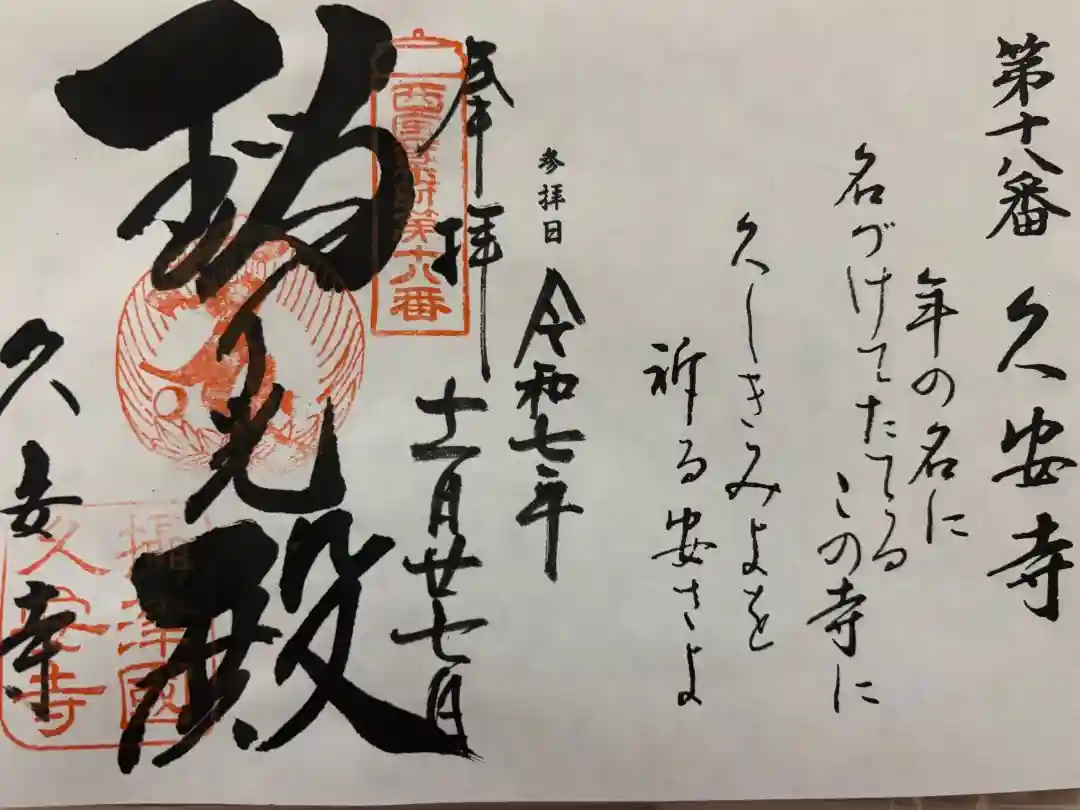 第十八番 久安寺
年の名に
名づけてたてる
この寺に
久しきみよを
祈る安さよ
参拝日 令和七年
十一月廿七日
奉拝
西國薬師第十八番
光殿
久安寺
攝津國
久安寺